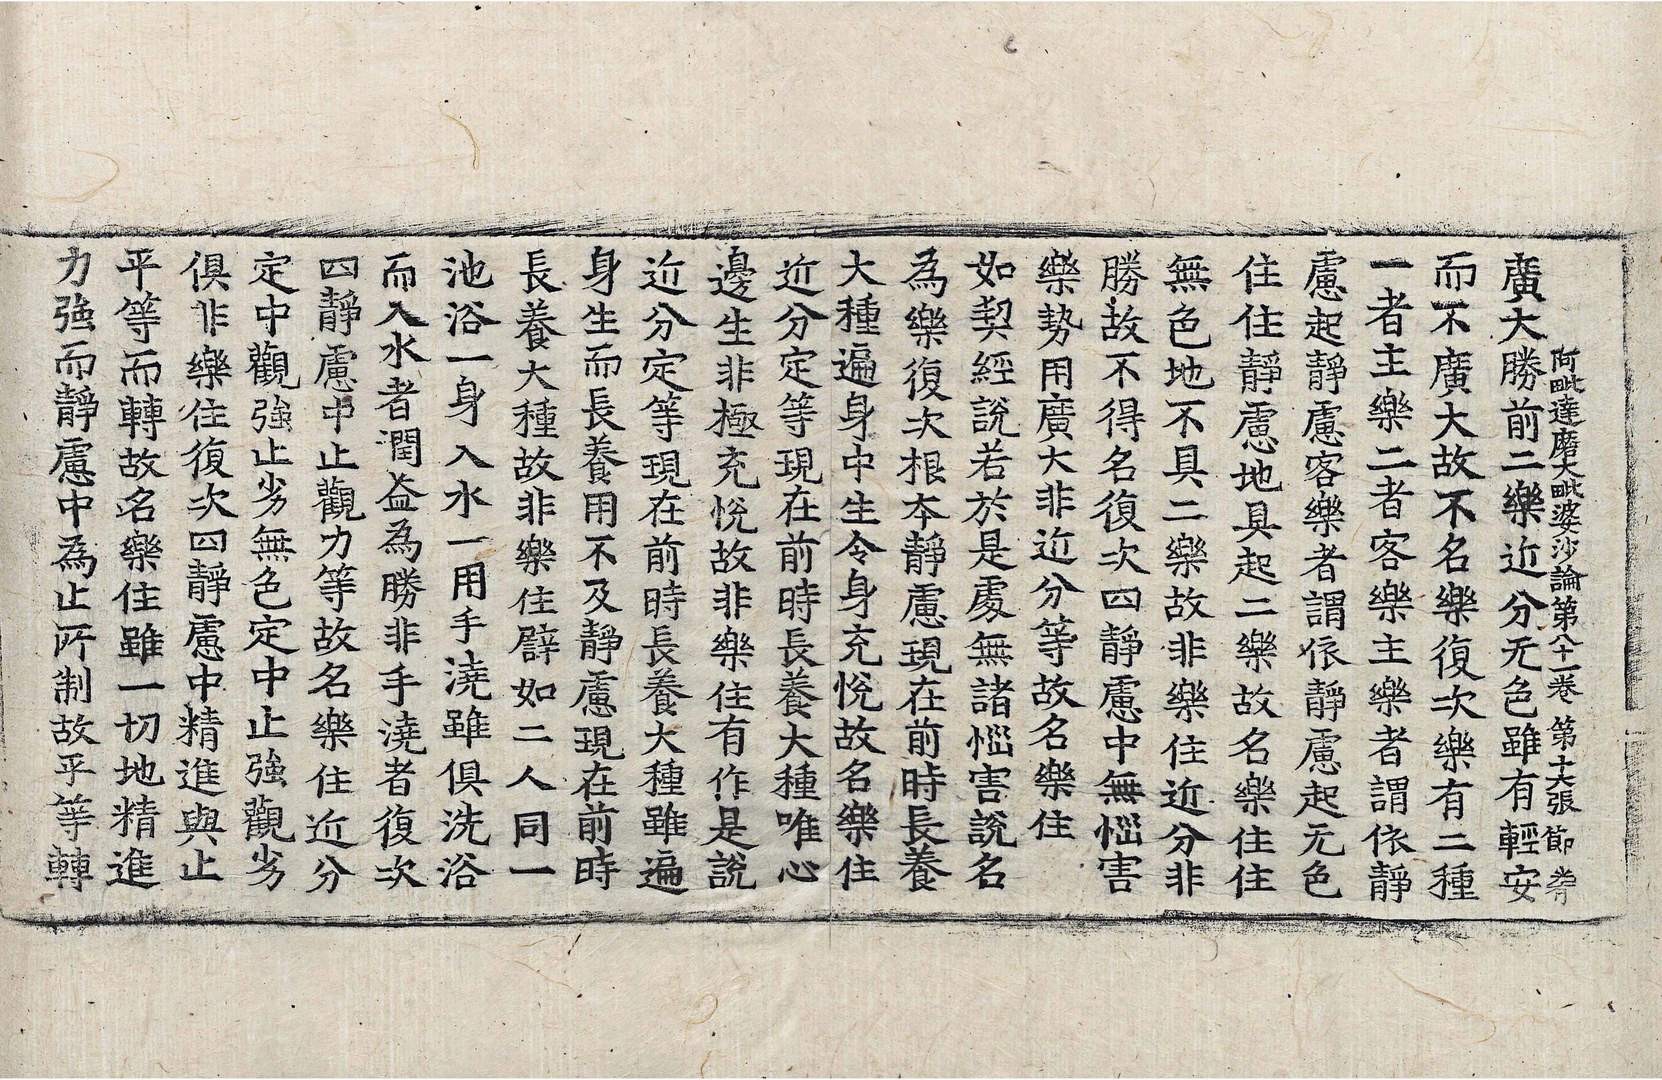 阿毗達磨大毗婆沙論第八十一卷 第十六張 節
廣大勝前二樂近分无色雖有輕安
而不廣大故不名樂復次樂有二種
一者主樂二者客樂主樂者謂依靜
慮起靜慮客樂者謂依靜慮起无色
住住靜慮地具起二樂故名樂住住
無色地不具二樂故非樂住近分非
勝故不得名復次四靜慮中無惱害
樂勢用廣大非近分等故名樂住
如契經說若於是處無諸惱害說名
為樂復次根本靜慮現在前時長養
大種遍身中生令身充悅故名樂住
近分定等現在前時長養大種唯心
邊生非極充悅故非樂住有作是說
近分定等現在前時長養大種雖遍
身生而長養用不及靜慮現在前時
長養大種故非樂住譬如二人同一
池浴一身入水一用手澆雖俱洗浴
而入水者潤益為勝非手澆者復次
四靜慮中止觀力等故名樂住近分
定中觀強止劣無色定中止強觀劣
俱非樂住復次四靜慮中精進與止
平等而轉故名樂住雖一切地精進
力強而靜慮中為止所制故平等轉